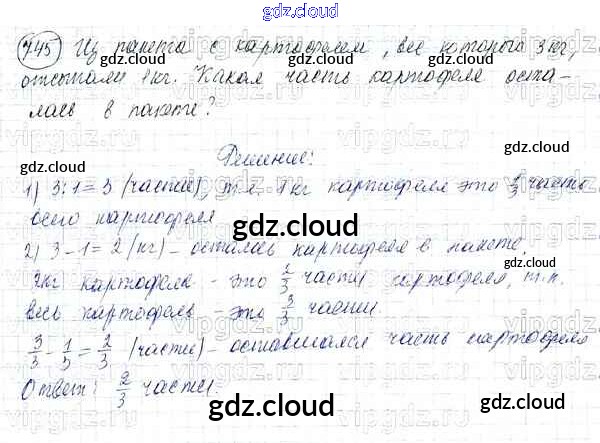 gdz.cloud
745 Из пакета с картофелем, вес которого 3 кг,
отсыпали 1 кг. Какая часть картофеля оста-
лась в пакете?
gdz.cloud
gdz.cloud
Решение:
gdz.cloud
1) 3:1=3 (части), т.е. 1 кг картофеля это 1/3 часть
всего картофеля
gdz.cloud
2) 3-1=2 (кг) - осталось картофеля в пакете.
2кг картофеля - это 2/3 части картофеля, т.к.
весь картофель - это 3/3 части.
gdz.cloud
gdz.cloud
3/3 - 1/3 = 2/3 (части) - оставшаяся часть картофеля
Ответ: 2/3 части.
gdz.cloud
gdz.cloud